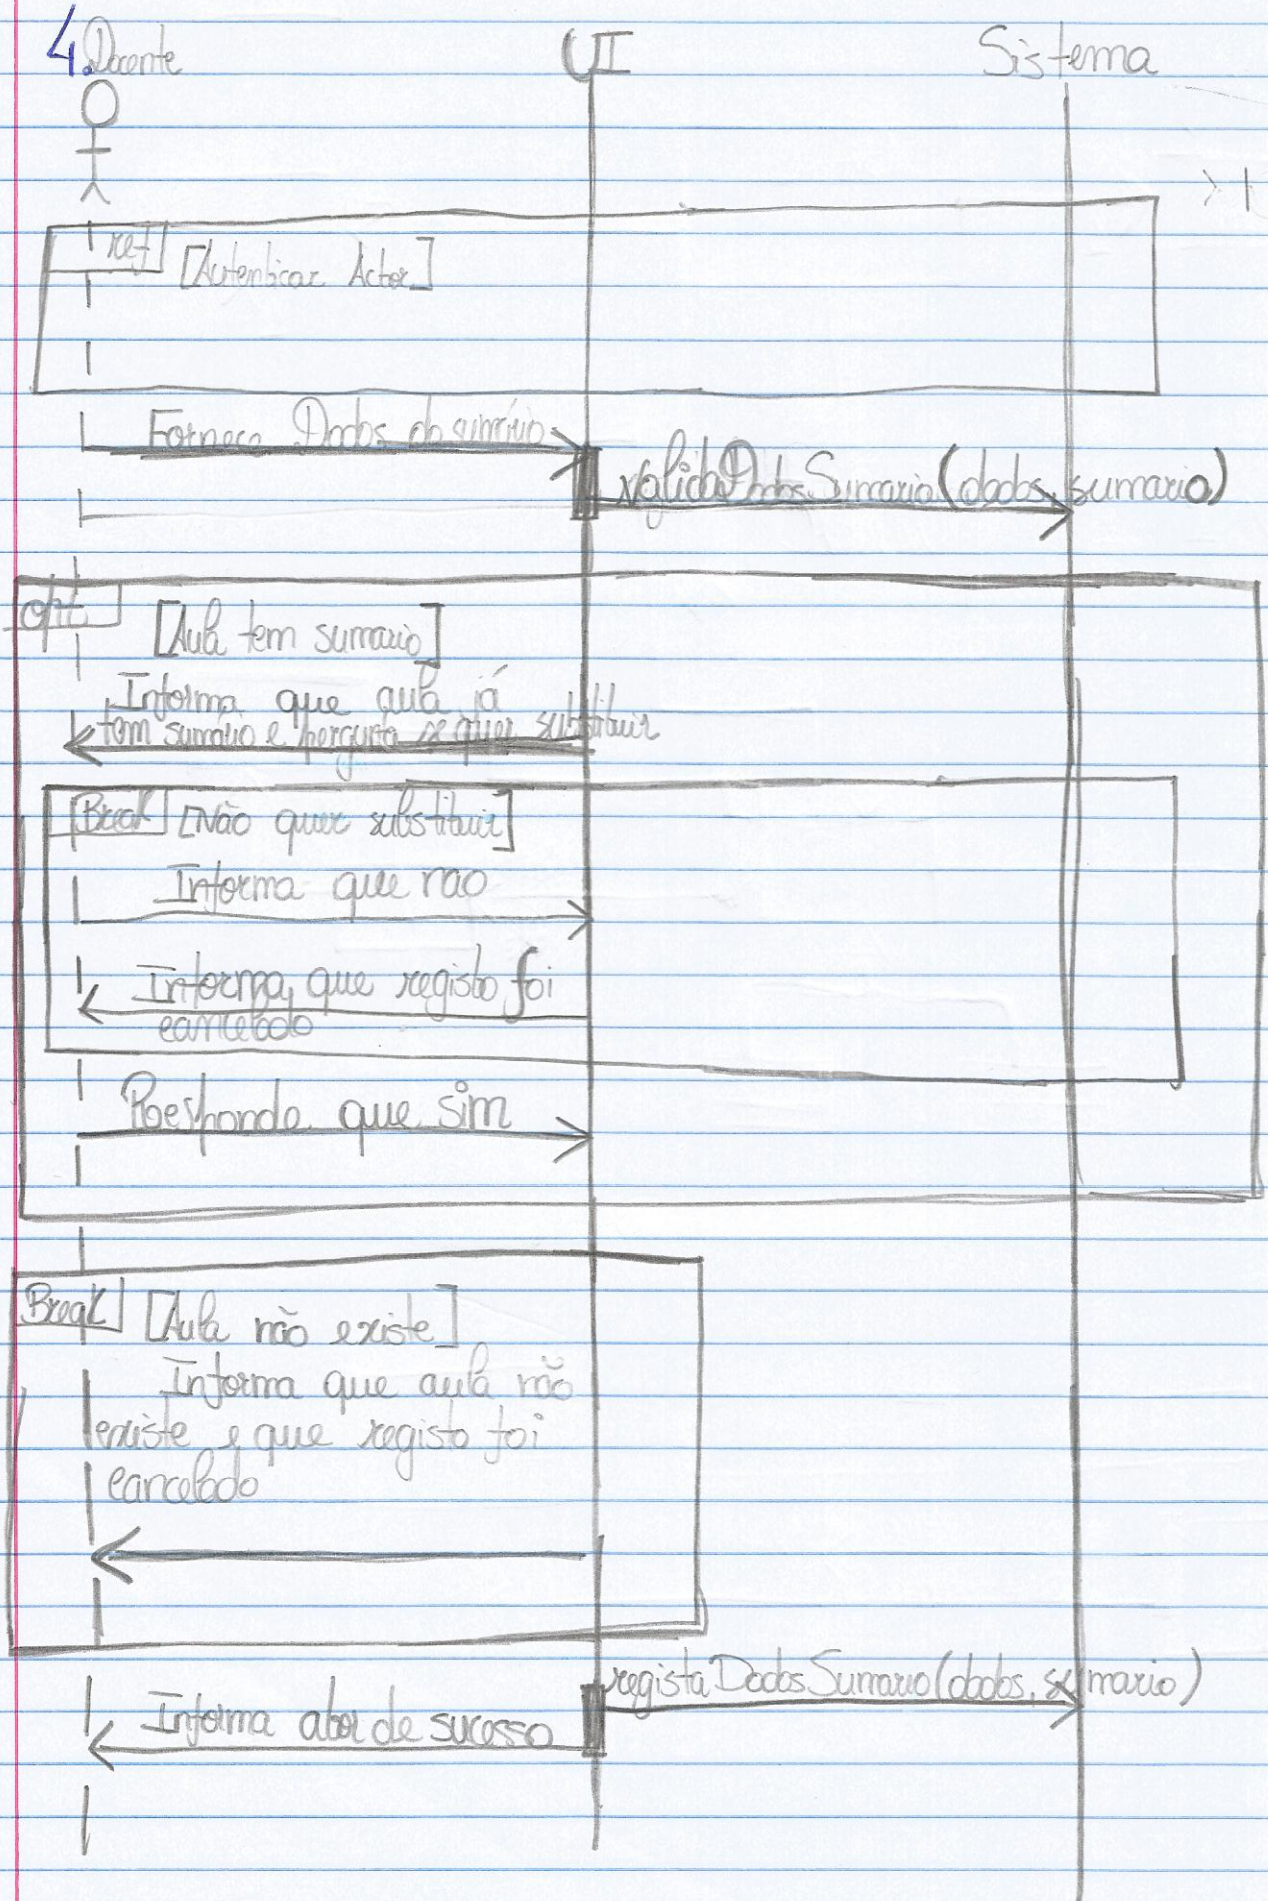 4. Docente UI Sistema
ref [Autenticar Actor]
Fornece Dados do sumário
validaDadosSumario(dados, sumario)
opt [Aula tem sumario]
Informa que aula já
tem sumário e pergunta se quer substituir
Break [Não quer substituir]
Informa que nao
Informa que registo foi
cancelado
Responde que sim
Break [Aula não existe]
Informa que aula não
existe e que registo foi
cancelado
registaDadosSumario(dados, sumario)
Informa ator de sucesso